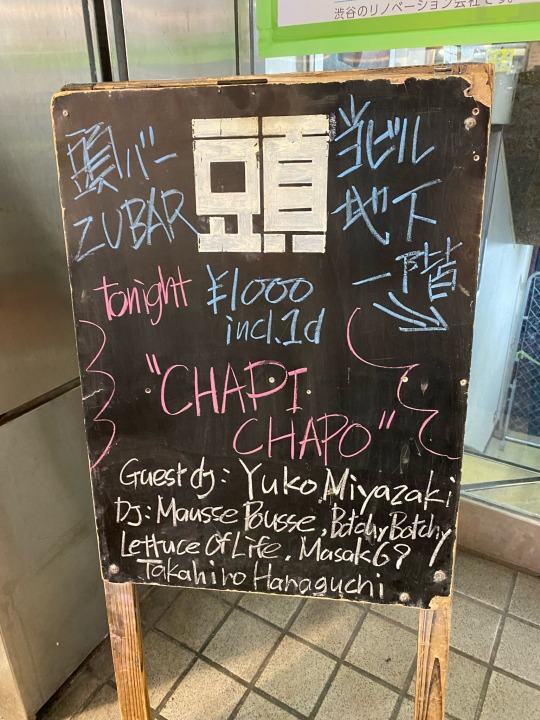 渋谷のリノベーション会社です。
頭バー
ZUBAR
頭
当ビル
地下
一階
tonight ¥1000
incl.1d
"CHAPI
CHAPO"
Guest dj: Yuko Miyazaki
Dj: Mausse Pousse, Botchy Botchy
Lettuce Of Life, Masak69
Takahiro Hanaguchi